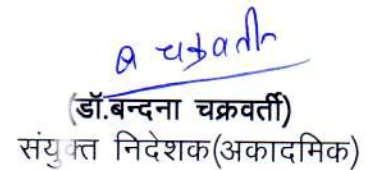 (डॉ.बन्दना चक्रवर्ती)
संयुक्त निदेशक(अकादमिक)